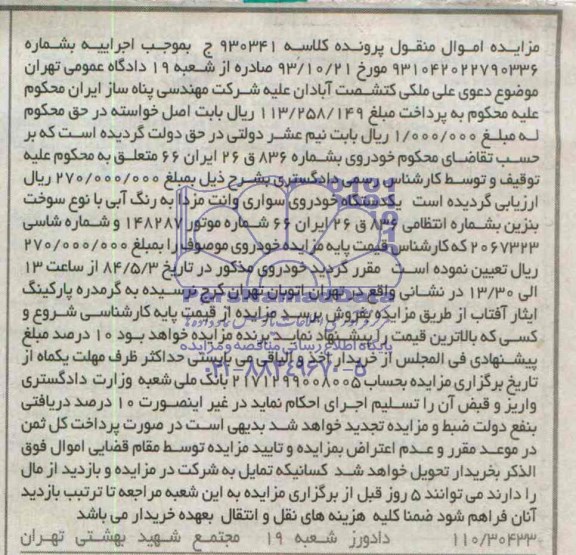 مزایده اموال منقول پرونده کلاسه ۹۳۰۳۴۱ ج بموجب اجراییه بشماره
۹۳۱۰۴۲۰۲۲۷۹۰۳۳۶ مورخ ۹۳/۱۰/۲۱ صادره از شعبه ۱۹ دادگاه عمومی تهران
موضوع دعوی علی ملکی کتشصت آبادان علیه شرکت مهندسی پناه ساز ایران محکوم
علیه محکوم به پرداخت مبلغ ۱۱۳/۲۵۸/۱۴۹ ریال بابت اصل خواسته در حق محکوم
له مبلغ ۱/۰۰۰/۰۰۰ ریال بابت نیم عشر دولتی در حق دولت گردیده است که بر
حسب تقاضای محکوم خودروی بشماره ۸۳۶ ق ۲۶ ایران ۶۶ متعلق به محکوم علیه
توقیف و توسط کارشناس رسمی دادگستری بشرح ذیل بمبلغ ۲۷۰/۰۰۰/۰۰۰ ریال
ارزیابی گردیده است یکدستگاه خودروی سواری وانت مزدا به رنگ آبی با نوع سوخت
بنزین بشماره انتظامی ۸۳۶ ق ۲۶ ایران ۶۶ شماره موتور ۱۴۸۲۸۷ و شماره شاسی
۲۰۶۷۳۲۳ که کارشناس قیمت پایه مزایده خودروی موصوف را بمبلغ ۲۷۰/۰۰۰/۰۰۰
ریال تعیین نموده است مقرر گردید خودروی مذکور در تاریخ ۸۴/۵/۳ از ساعت ۱۳
الی ۱۳/۳۰ در نشانی واقع در تهران اتوبان تهران کرج نرسیده به گرمدره پارکینگ
ایثار آفتاب از طریق مزایده بفروش برسد مزایده از قیمت پایه کارشناسی شروع و
کسی که بالاترین قیمت را پیشنهاد نماید برنده مزایده خواهد بود ۱۰ درصد مبلغ
پیشنهادی فی المجلس از خریدار اخذ و الباقی می بایستی حداکثر ظرف مهلت یکماه از
تاریخ برگزاری مزایده بحساب ۲۱۷۱۲۹۹۰۰۸۰۰۵ بانک ملی شعبه وزارت دادگستری
واریز و قبض آن را تسلیم اجرای احکام نماید در غیر اینصورت ۱۰ درصد دریافتی
بنفع دولت ضبط و مزایده تجدید خواهد شد بدیهی است در صورت پرداخت کل ثمن
در موعد مقرر و عدم اعتراض بمزایده و تایید مزایده توسط مقام قضایی اموال فوق
الذکر بخریدار تحویل خواهد شد کسانیکه تمایل به شرکت در مزایده و بازدید از مال
را دارند می توانند ۵ روز قبل از برگزاری مزایده به این شعبه مراجعه تا ترتبب بازدید
آنان فراهم شود ضمنا کلیه هزینه های نقل و انتقال بعهده خریدار می باشد
۱۱۰/۳۰۴۳۳ دادورز شعبه ۱۹ مجتمع شهید بهشتی تهران
ParsNamadData
پایگاه اطلاع رسانی مناقصه و مزایده
۰۲۱-۸۸۳۴۹۶۷۰-۵